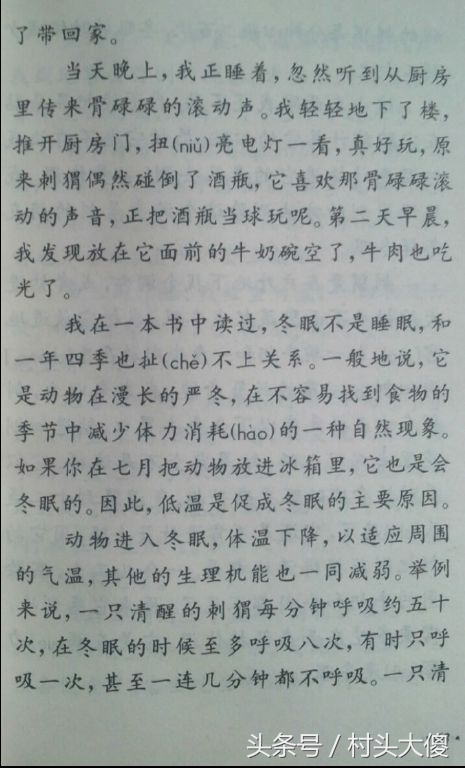 了带回家。
当天晚上，我正睡着，忽然听到从厨房
里传来骨碌碌的滚动声。我轻轻地下了楼，
推开厨房门，扭(niǔ)亮电灯一看，真好玩，原
来刺猬偶然碰倒了酒瓶，它喜欢那骨碌碌滚
动的声音，正把酒瓶当球玩呢。第二天早晨，
我发现放在它面前的牛奶碗空了，牛肉也吃
光了。
我在一本书中读过，冬眠不是睡眠，和
一年四季也扯(chě)不上关系。一般地说，它
是动物在漫长的严冬，在不容易找到食物的
季节中减少体力消耗(hào)的一种自然现象。
如果你在七月把动物放进冰箱里，它也是会
冬眠的。因此，低温是促成冬眠的主要原因。
动物进入冬眠，体温下降，以适应周围
的气温，其他的生理机能也一同减弱。举例
来说，一只清醒的刺猬每分钟呼吸约五十
次，在冬眠的时候至多呼吸八次，有时只呼
吸一次，甚至一连几分钟都不呼吸。一只清
头条号 / 村头大傻